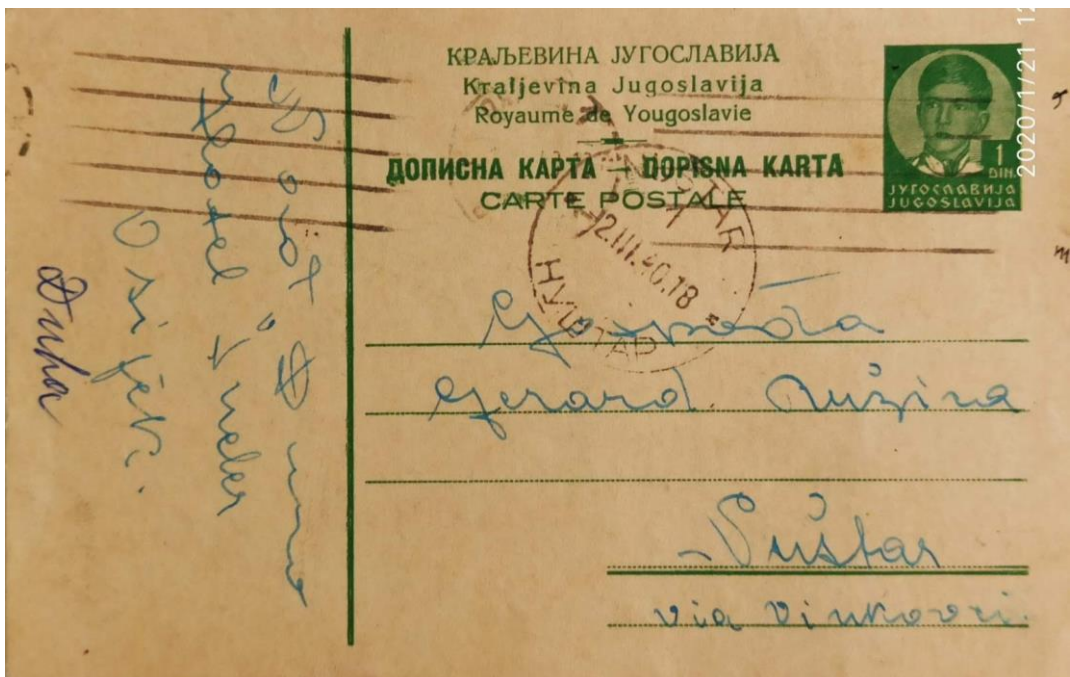 КРАЉЕВИНА ЈУГОСЛАВИЈА
Kraljevina Jugoslavija
Royaume de Yougoslavie
ДОПИСНА КАРТА – DOPISNA KARTA
CARTE POSTALE
1
DIN.
ЈУГОСЛАВИЈА
JUGOSLAVIJA
2020/1/21 12
NUŠTAR
12.III.40.18
НУШТАР
Gerard Ružina
Nuštar
via Vinkovci
Hotel
Osijek.